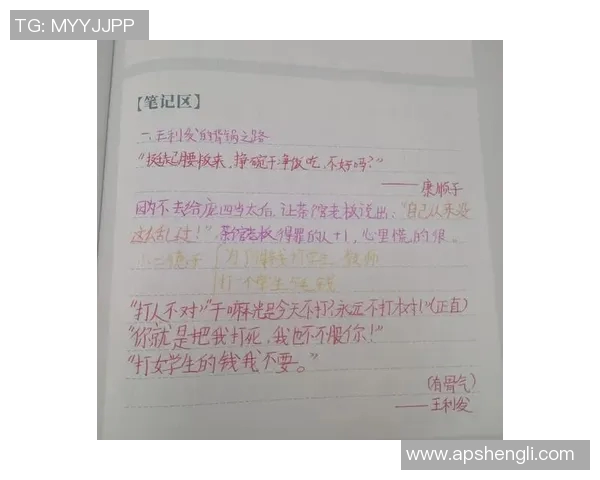 TG: MYYJJPP
【笔记区】
一、王利发的背锅之路
"挺起腰板来，挣碗干净饭吃，不好吗？"
——康顺子
因为不去给庞四当太后，让茶馆老板说出："自己从来没
这么乱过！"茶馆老板得罪的人+1，心里慌的很。
二德子
打一个学生
"打人不对""干嘛光是今天不打？永远不打才对！"（正直）
"你就是把我打死，我也不服你！"
"打女学生的钱我不要。"
（有骨气）
——王利发
www.apshengli.com